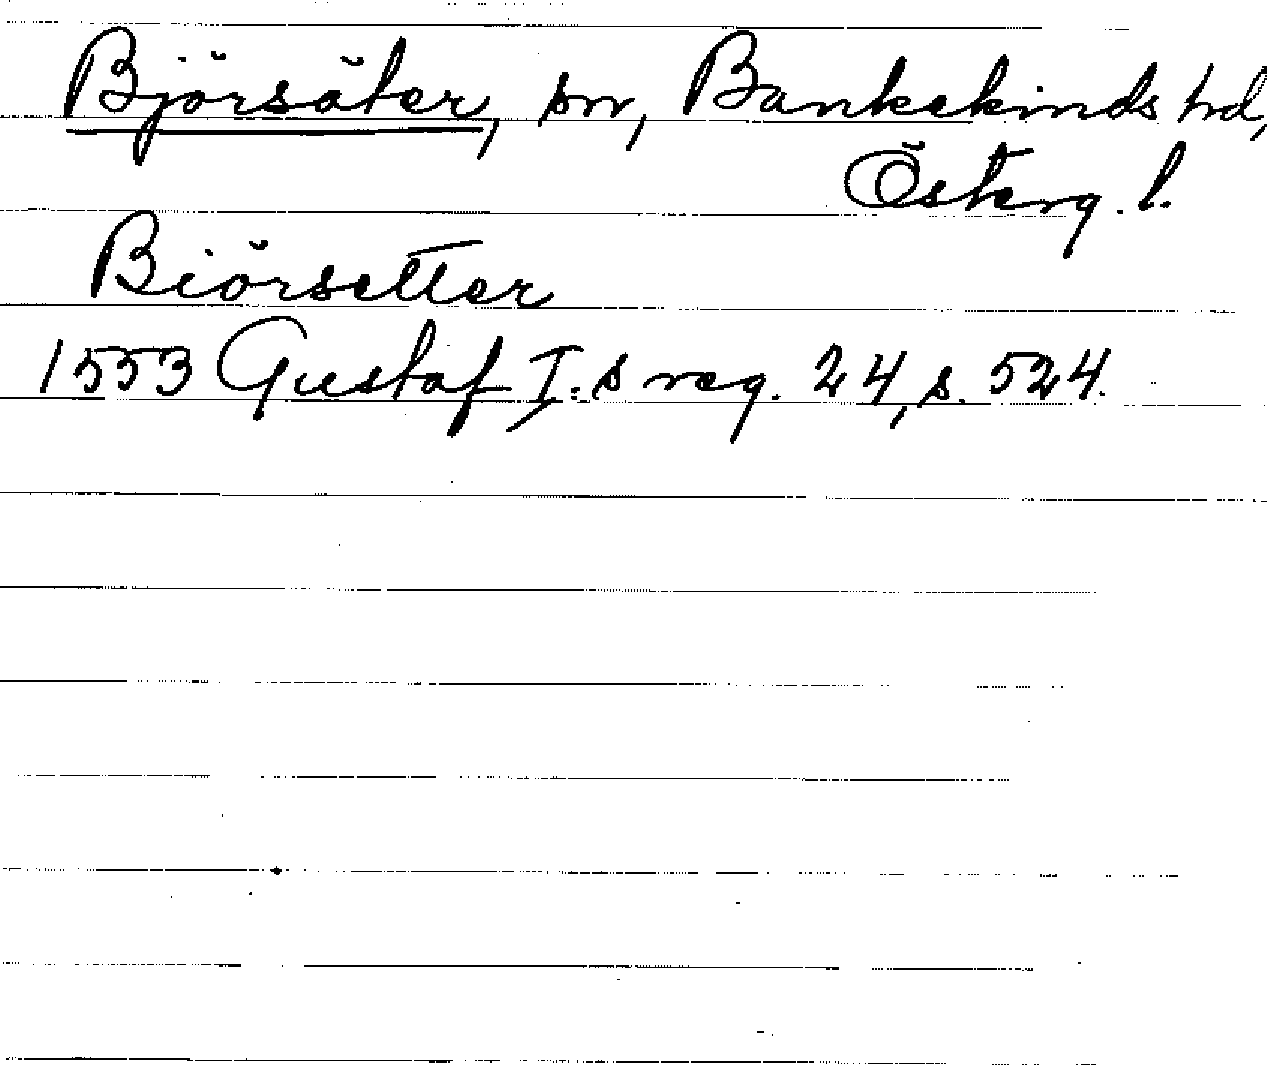 Björsäter, sn, Bankekinds hd,
Österg. l.
Biörsetter
1553 Gustaf I:s reg. 24, s. 524.